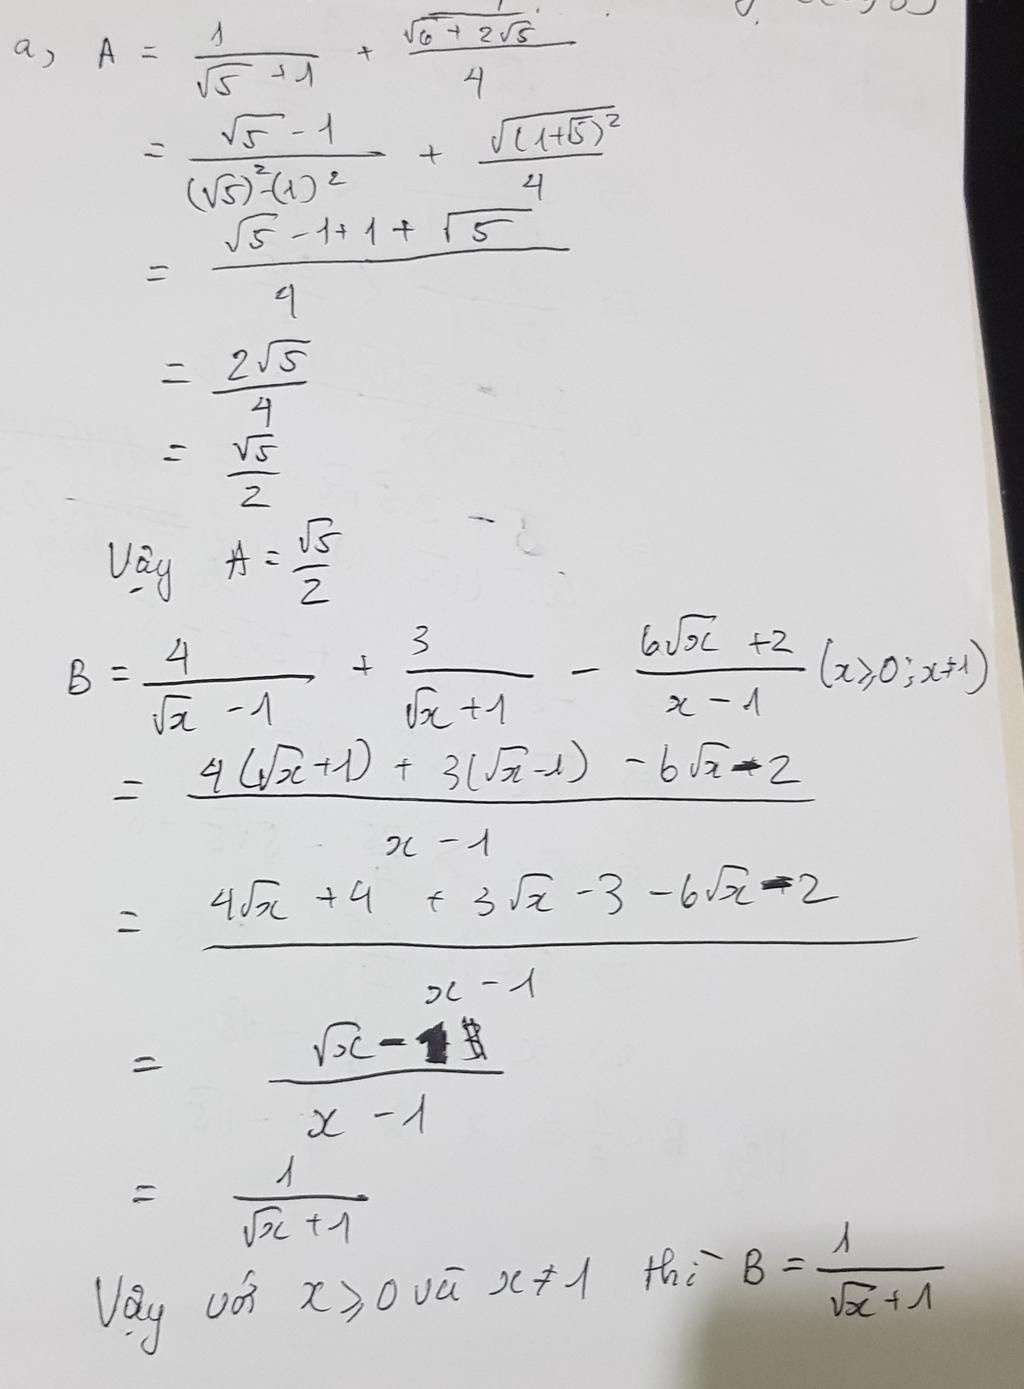 a, A = 1/(√5 + 1) + √(6 + 2√5)/4
= (√5 - 1)/((√5)² - (1)²) + √((1+√5)²)/4
= (√5 - 1 + 1 + √5)/4
= 2√5/4
= √5/2
Vậy A = √5/2
B = 4/(√x - 1) + 3/(√x + 1) - (6√x + 2)/(x - 1) (x ≥ 0; x ≠ 1)
= (4(√x + 1) + 3(√x - 1) - 6√x - 2)/(x - 1)
= (4√x + 4 + 3√x - 3 - 6√x - 2)/(x - 1)
= (√x - 1)/(x - 1)
= 1/(√x + 1)
Vậy với x ≥ 0 và x ≠ 1 thì B = 1/(√x + 1)